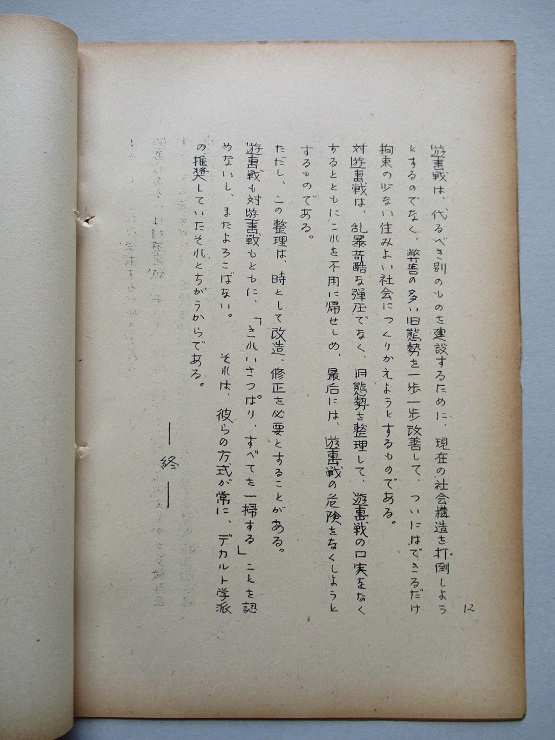 12
遊撃戦は、代るべき別のものを建設するために、現在の社会構造を打倒しよう
とするのでなく、弊害の多い旧態勢を一歩一歩改善して、ついにはできるだけ
拘束の少ない住みよい社会につくりかえようとするものである。
対遊撃戦は、乱暴苛酷な弾圧でなく、旧態勢を整理して、遊撃戦の口実をなく
するとともにこれを不用に帰せしめ、最后には、遊撃戦の危険をなくしようと
するものである。
ただし、この整理は、時として改造、修正を必要とすることがある。
遊撃戦も対遊撃戦もともに、「きれいさっぱり、すべてを一掃する」ことを認
めないし、またよろこばない。それは、彼らの方式が常に、デカルト学派
の推奨していたそれとちがうからである。
―終―